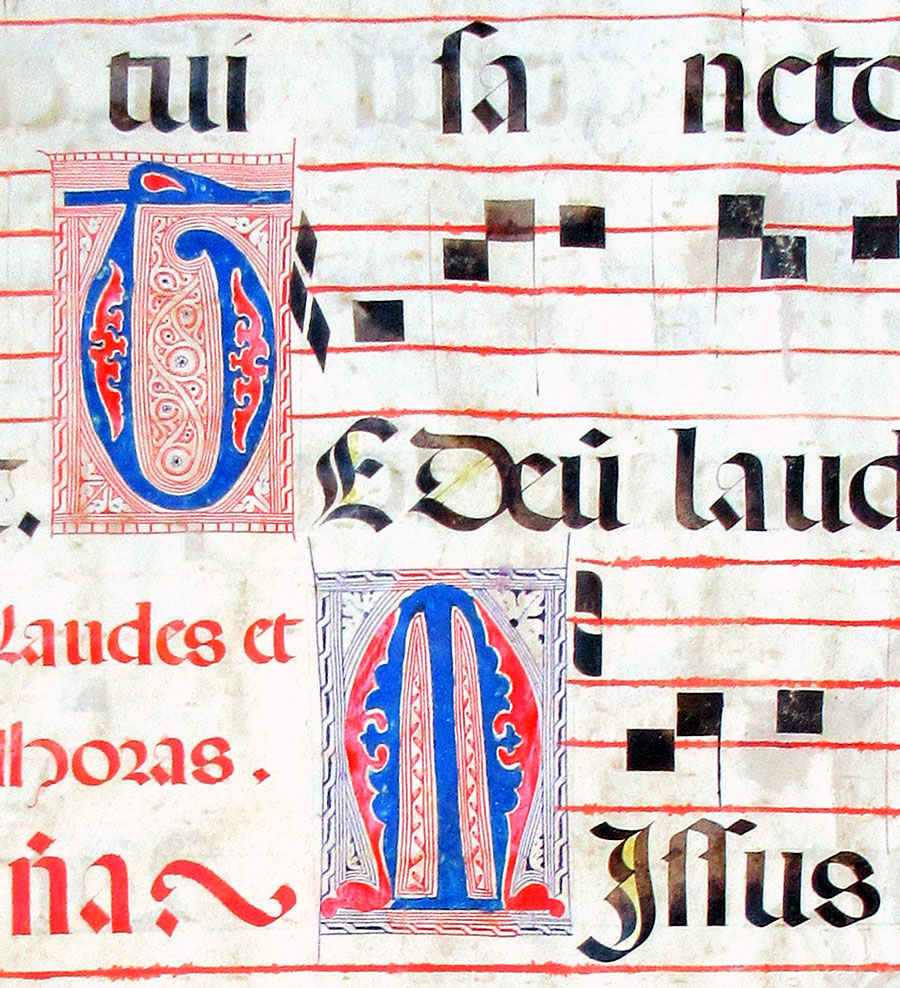 tui sancto
TE Deũ laud
Laudes et
dhoras.
ña
MIssus